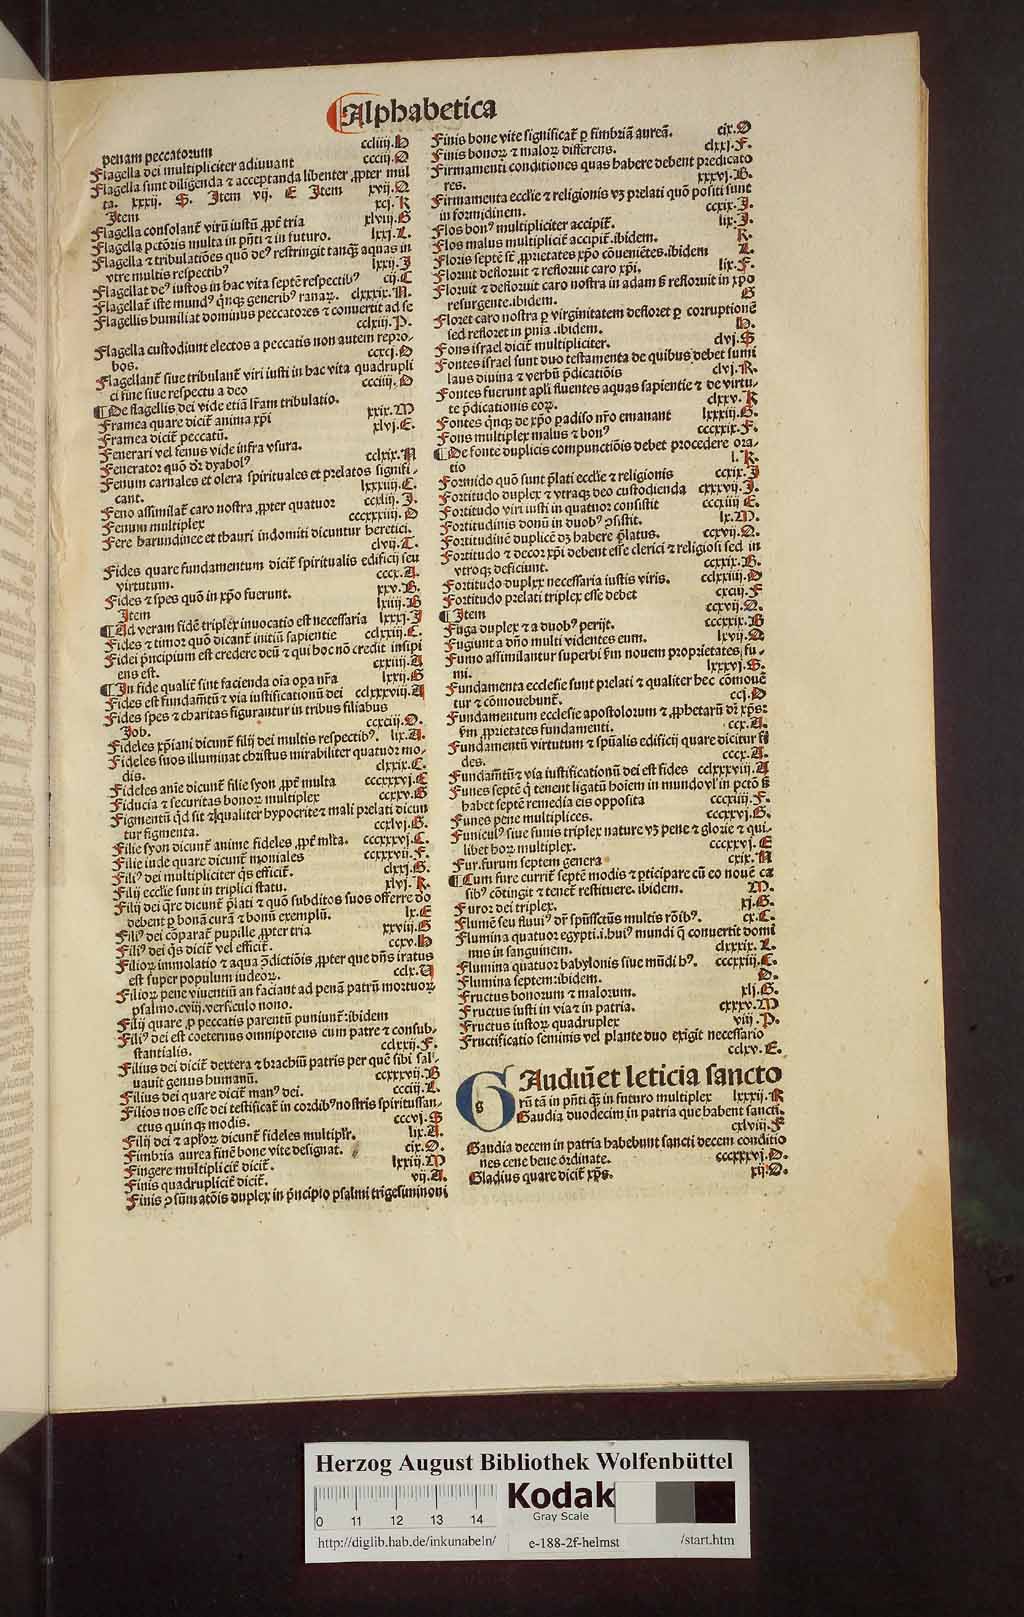 Alphabetica
penam peccatorum ccliiij.H
Flagella dei multipliciter adiuuant ccciij.O
Flagella sunt diligenda ⁊ acceptanda libenter ꝓpter mul
ta. xxxij. S. Item vij. E Item xvij.Q
Item xcj.K
Flagella consolant᷑ virū iustū ꝓpt᷑ tria xlviij.G
Flagella pctōris multa in pn̄ti ⁊ in futuro. lxxj.L.
Flagella ⁊ tribulatiōes quō deꝰ restringit tanqȝ aquas in
vtre multis respectibꝰ lxxij.I
Flagellat deꝰ iustos in hac vita septē respectibꝰ cij.C
Flagellat᷑ iste mundꝰ qͥnqȝ generibꝰ ranaꝝ. clxxxix.N.
Flagellis humiliat dominus peccatores ⁊ conuertit ad se
cclxiij.P.
Flagella custodiunt electos a peccatis non autem repro-
bos. ccxcj.O
Flagellant᷑ siue tribulant᷑ viri iusti in hac vita quadrupli
ci fine siue respectu a deo ccciiij.O
¶De flagellis dei vide etiā lr̄am tribulatio.
Framea quare dicit᷑ anima xp̄i xxix.M
Framea dicit᷑ peccatū. xlvj.E.
Fenerari vel fenus vide infra vsura.
Fenerator quō dr̄ dyabolꝰ cclxix.N
Fenum carnales et olera spirituales et prelatos signifi-
cant. lxxxiiij.C.
Feno assimilat᷑ caro nostra ꝓpter quatuor ccxliij.I.
Fenum multiplex cccxxxiiij.O
Fere harundinee et thauri indomiti dicuntur heretici.
clvij.T.
Fides quare fundamentum dicit᷑ spiritualis edificij seu
virtutum. cccx.A.
Fides ⁊ spes quō in xp̄o fuerunt. xxv.B.
Item lxiiij.B
¶Ad veram fidē triplex inuocatio est necessaria lxxxj.I
Fides ⁊ timor quō dicant᷑ initiū sapientie cclxxiij.C.
Fidei p̄ncipium est credere deū ⁊ qui hoc nō credit insipi
ens est. cxxiiij.A
¶In fide qualit᷑ sint facienda oīa oꝑa nr̄a lxxij.G
Fides est fundam̄tū ⁊ via iustificationū dei cclxxxviij.A
Fides spes ⁊ charitas figurantur in tribus filiabus
Job. ccxciij.O.
Fideles xp̄iani dicunt᷑ filij dei multis respectibꝰ. lix.A.
Fideles suos illuminat christus mirabiliter quatuor mo-
dis. clxxix.C.
Fideles anīe dicunt᷑ filie syon ꝓpt᷑ multa cccxxxvj.E
Fiducia ⁊ securitas bonoꝝ multiplex ccxxv.G
Figmentū qͥd sit ⁊ qualiter hypocrite ⁊ mali prelati dicun
tur figmenta. ccxlvj.G.
Filie syon dicunt᷑ anime fideles ꝓpt᷑ ml̄ta. cccxxxvj.C.
Filie inde quare dicunt᷑ moniales ccxxxvij.F.
Filiꝰ dei multipliciter qͥs efficit᷑. clxxj.G.
Filij ecclīe sunt in triplici statu. xlvj.K.
Filij dei qͣre dicunt᷑ p̄lati ⁊ quō subditos suos offerre deo
debent ꝑ bonā curā ⁊ bonū exemplū. lx.E
Filiꝰ dei cōparat᷑ pupille ꝓpter tria xxviij.G
Filiꝰ dei qͥs dicit᷑ vel efficit᷑. ccxv.H
Filioꝝ immolatio ⁊ aqua ꝯdictiōis ꝓpter que dn̄s iratus
est super populum iudeoꝝ. cclx.V
Filioꝝ pene viuentiū an faciant ad penā patrū mortuoꝝ
psalmo.cviij.versiculo nono.
Filij quare ꝓ peccatis parentū puniunt᷑:ibidem
Filiꝰ dei est coeternus omnipotens cum patre ⁊ consub-
stantialis. cclxxij.F.
Filius dei dicit᷑ dextera ⁊ brachiū patris per quē sibi sal-
uauit genus humanū. ccxxxvij.B
Filius dei quare dicit᷑ manꝰ dei. ccciij.L.
Filios nos esse dei testificat᷑ in cordibꝰ nostris spiritussan-
ctus quinqȝ modis. cccvj.S
Filij dei ⁊ apl̄oꝝ dicunt᷑ fideles multipl᷑r. lix.A.
Fimbria aurea finē bone vite designat. cix.O.
Fingere multiplicit᷑ dicit᷑. lxxiij.M
Finis quadruplicit᷑ dicit᷑. vij.A.
Finis ꝯsūmatōis duplex in p̄ncipio psalmi trigesiminoni
Finis bone vite significat᷑ ꝑ fimbriā aureā. cix.O
Finis bonoꝝ ⁊ maloꝝ differens. clxxj.F.
Firmamenti conditiones quas habere debent predicato
res. xxxvj.B.
Firmamenta ecclīe ⁊ religionis vȝ prelati quō positi sunt
in formidinem. ccxix.I.
Flos bonꝰ multipliciter accipit᷑. lix.I.
Flos malus multiplicit᷑ accipit᷑.ibidem. K.
Floris septē sūt ꝓprietates xp̄o cōueniētes.ibidem L.
Floruit defloruit ⁊ refloruit caro xp̄i. lix.F.
Floruit ⁊ defloruit caro nostra in adam s̄ refloruit in xp̄o
resurgente.ibidem. G
Floret caro nostra ꝑ virginitatem defloret ꝑ corruptionē
sed refloret in pn̄ia .ibidem. H.
Fons israel dicit᷑ multipliciter. clvj.S
Fontes israel sunt duo testamenta de quibus debet sumi
laus diuina ⁊ verbū p̄dicatiōis clvj.R.
Fontes fuerunt apl̄i fluentes aquas sapientie ⁊ de virtu-
te p̄dicationis eoꝝ. clxxv.K
Fontes qͥnqȝ de xp̄o ꝑadiso nr̄o emanant lxxxiij.G.
Fons multiplex malus ⁊ bonꝰ cccxxix.F.
¶De fonte duplicis compunctiōis debet procedere ora-
tio l.K.
Formido quō sunt p̄lati ecclīe ⁊ religionis ccxix.I
Fortitudo duplex ⁊ vtraqȝ deo custodienda cxxxvij.I.
Fortitudo viri iusti in quatuor consistit ccxiiij E.
Fortitudinis donū in duobꝰ ꝯsistit. lx.M.
Fortitudinē duplicē dȝ habere p̄latus. ccxvij.Q.
Fortitudo ⁊ decor xp̄i debent esse clerici ⁊ religiosi sed in
vtroqȝ deficiunt. ccxxix.B.
Fortitudo duplex necessaria iustis viris. cclxxiiij.O
Fortitudo prelati triplex esse debet cxciij.F
¶Item ccxvij.Q.
Fuga duplex ⁊ a duobꝰ perijt. cccxxix.B
Fugiunt a dn̄o multi videntes eum. lxvij.Q
Fumo assimilantur superbi ẜm nouem proprietates fu-
mi. lxxxvj.S.
Fundamenta ecclesie sunt prelati ⁊ qualiter hec cōmoue
tur ⁊ cōmouebunt᷑. ccj.O
Fundamentum ecclesie apostolorum ⁊ ꝓphetarū dr̄ xp̄s:
ẜm ꝓprietates fundamenti. ccx.A.
Fundamentū virtutum ⁊ spūalis edificij quare dicitur fi
des. cccx.A.
Fundam̄tū ⁊ via iustificationū dei est fides cclxxxviij.A
Funes septē qͥ tenent ligatū hoīem in mundo vl᷑ in pctō s̄
habet septē remedia eis opposita cccxiiij.F.
Funes pene multiplices. cccxxvj.G.
Funiculꝰ siue funis triplex nature vȝ pene ⁊ glorie ⁊ qui-
libet hoꝝ multiplex. cccxxvj.E
Fur.furum septem genera cxix.N
¶Cum fure currit᷑ septē modis ⁊ ꝑticipare cū eo nouē ca
sibꝰ cōtingit ⁊ tenet᷑ restituere.ibidem. M.
Furor dei triplex. xj.G.
Flumē seu fluuiꝰ dr̄ spūssctūs multis rōibꝰ. cx.C.
Flumina quatuor egypti.i.huiꝰ mundi q̄ conuertit domi
nus in sanguinem. clxxxix.L.
Flumina quatuor babylonis siue mūdi hꝰ. cccxxiij.C.
Flumina septem:ibidem. D.
Fructus bonorum ⁊ malorum. xlj.G.
Fructus iusti in via ⁊ in patria. cxxxv.M
Fructus iustoꝝ quadruplex viij.P.
Fructificatio seminis vel plante duo exigit necessario
cclxv.E.
GAudiū et leticia sancto
rū tā in pn̄ti qͣȝ in futuro multiplex lxxxij.R
Gaudia duodecim in patria que habent sancti.
cxlviij.F
Gaudia decem in patria habebunt sancti decem conditio
nes cene bene ordinate. cccxxxvj.O.
Gladius quare dicit᷑ xp̄s. xij.O.
Herzog August Bibliothek Wolfenbüttel
0 11 12 13 14
Kodak
Gray Scale
http://diglib.hab.de/inkunabeln/ e-188-2f-helmst /start.htm